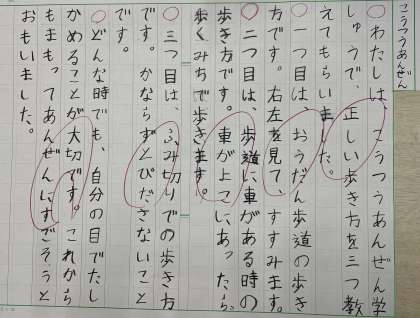 こうつうあんぜん
○わたしは、こうつうあんぜん学
しゅうで、正しい歩き方を三つ教
えてもらいました。
○一つ目は、おうだん歩道の歩き
方です。右左を見て、すすみます。
○二つ目は、歩道に車がある時の
歩き方です。車がよこにあったら、
歩くみちで歩きます。
○三つ目は、ふみ切りでの歩き方
です。かならずとびださないこと
です。
○どんな時でも、自分の目でたし
かめることが大切です。これから
もまもってあんぜんにすごそうと
おもいました。